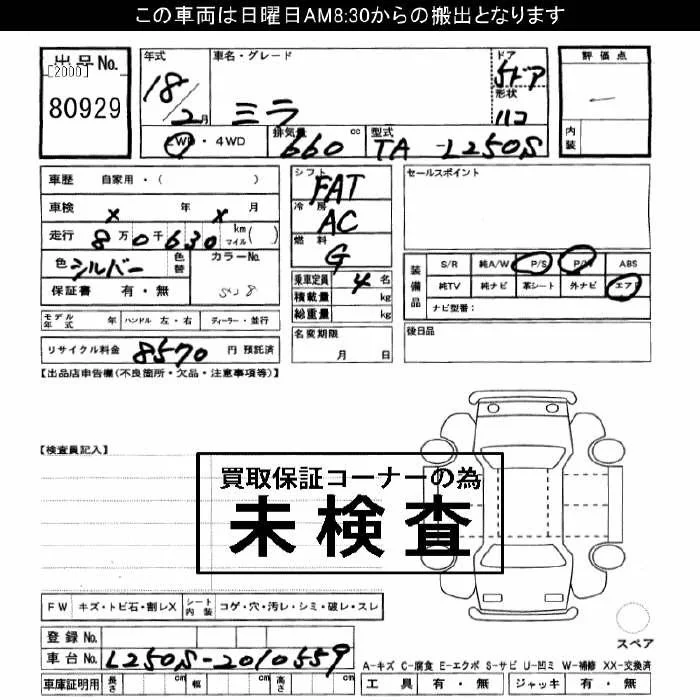 この車両は日曜日AM8:30からの搬出となります
出品No.
[2000]
80929
年式
18/2月
車名・グレード
ミラ
ドア
5ドア
形状
評価点
内装
2WD・4WD
排気量
660 cc
型式
TA-L250S
車歴 自家用・( )
車検 × 年 × 月
走行 8万0千630 km マイル( )
色 シルバー 色替
カラーNo.
保証書 有・無
シフト
FAT
冷房
AC
燃料
G
乗車定員 4名
積載量 kg
総重量 kg
セールスポイント
装備品
S/R 純A/W P/S P/W ABS
純TV 純ナビ 革シート 外ナビ エアB
ナビ型式:
モデル年式 年 ハンドル 左・右 ディーラー・並行
名変期限
月 日
後日品
リサイクル料金 8570 円 預託済
【出品店申告欄(不良箇所・欠品・注意事項等)】
【検査員記入】
買取保証コーナーの為
未検査
FW キズ・トビ石・割レX シート内装 コゲ・穴・汚レ・シミ・破レ・スレ
スペア
登録No.
車台No. L250S-2010559
A-キズ C-腐食 E-エクボ S-サビ U-凹ミ W-補修 XX-交換済
車庫証明用 長さ cm 幅 cm 高さ cm
工具 有・無 ジャッキ 有・無